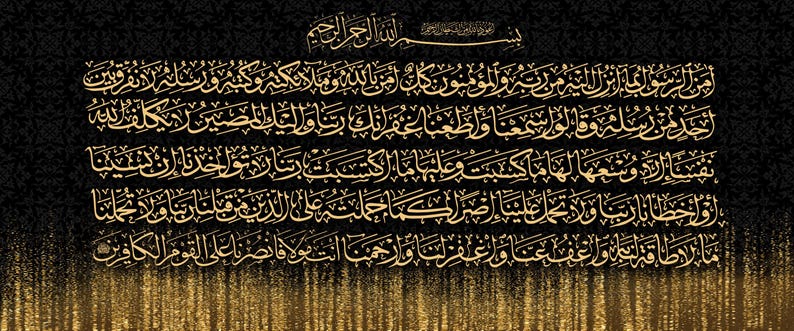 أعوذ بالله من الشيطان الرجيم
بسم الله الرحمن الرحيم
آمن الرسول بما أنزل إليه من ربه والمؤمنون كل آمن بالله وملائكته وكتبه ورسله لا نفرق بين
أحد من رسله وقالوا سمعنا وأطعنا غفرانك ربنا وإليك المصير لا يكلف الله
نفسا إلا وسعها لها ما كسبت وعليها ما اكتسبت ربنا لا تؤاخذنا إن نسينا
أو أخطأنا ربنا ولا تحمل علينا إصرا كما حملته على الذين من قبلنا ربنا ولا تحملنا
ما لا طاقة لنا به واعف عنا واغفر لنا وارحمنا أنت مولانا فانصرنا على القوم الكافرين